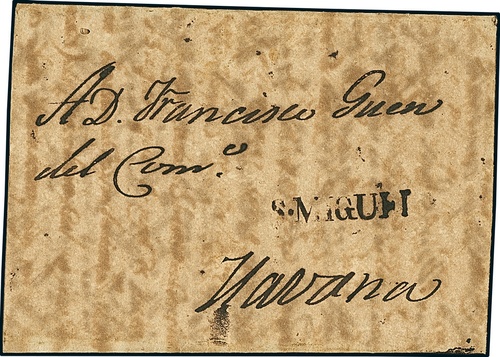 A D. Francisco Guen
del Com.º
S. MIGUEL
Havana